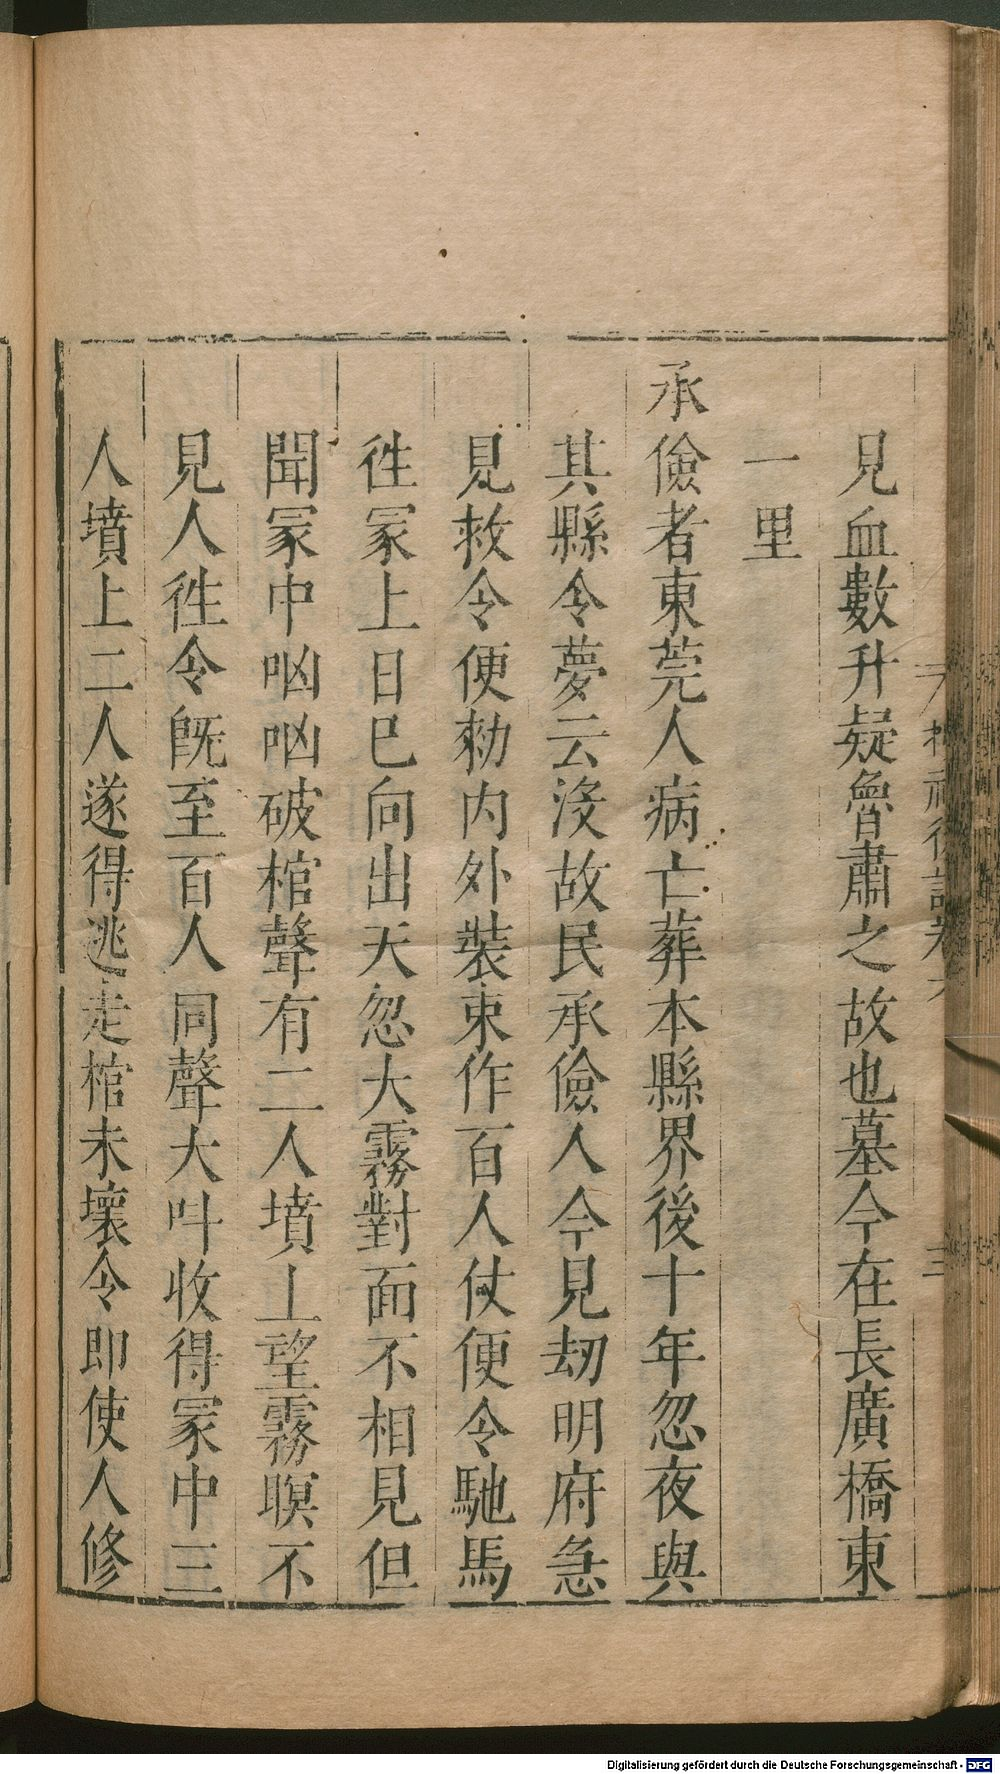 見血數升疑魯肅之故也墓今在長廣橋東
一里
承儉者東莞人病亡葬本縣界後十年忽夜與
其縣令夢云沒故民承儉人今見刼明府急
見救令便勑内外裝束作百人仗便令馳馬
徃冢上日已向出天忽大霧對面不相見但
聞冢中哅哅破棺聲有二人墳上望霧暝不
見人徃令旣至百人同聲大呌收得冢中三
人墳上二人遂得逃走棺未壞令即使人修
三
Digitalisierung gefördert durch die Deutsche Forschungsgemeinschaft - DFG